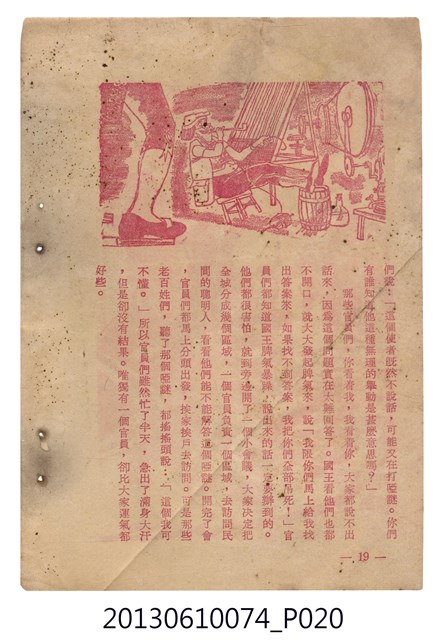 們說：「這個使者既然不說話，可能又在打啞謎。你們
有誰知道他這種無理的舉動是甚麼意思嗎？」
那些官員們，你看看我，我看看你，大家都說不出
話來，因爲這個問題實在太難回答了。國王看他們也都
不開口，就大大發起脾氣來，說「我限你們馬上給我找
出答案來，如果找不到答案，我把你們全部殺死！」官
員們都知道國王脾氣暴躁，說出來的話一定要辦到的。
他們都很害怕，就到外邊開了一個小會議，大家決定把
全城分成幾個區域，一個官員負責一個區域，去訪問民
間的聰明人，看看他們能不能解答這個啞謎。開完了會
，官員們都馬上分頭出發，挨家挨戶去訪問。可是那些
老百姓們，聽了那個啞謎，都搖搖頭說：「這個我可
不懂。」所以官員們雖然忙了半天，急出了滿身大汗
，但是卻沒有結果。唯獨有一個官員，卻比大家運氣都
好些。
— 19 —
20130610074_P020